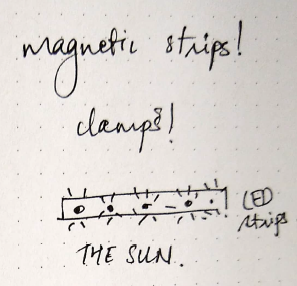 magnetic strips!
clamps?!
LED
strips
THE SUN.